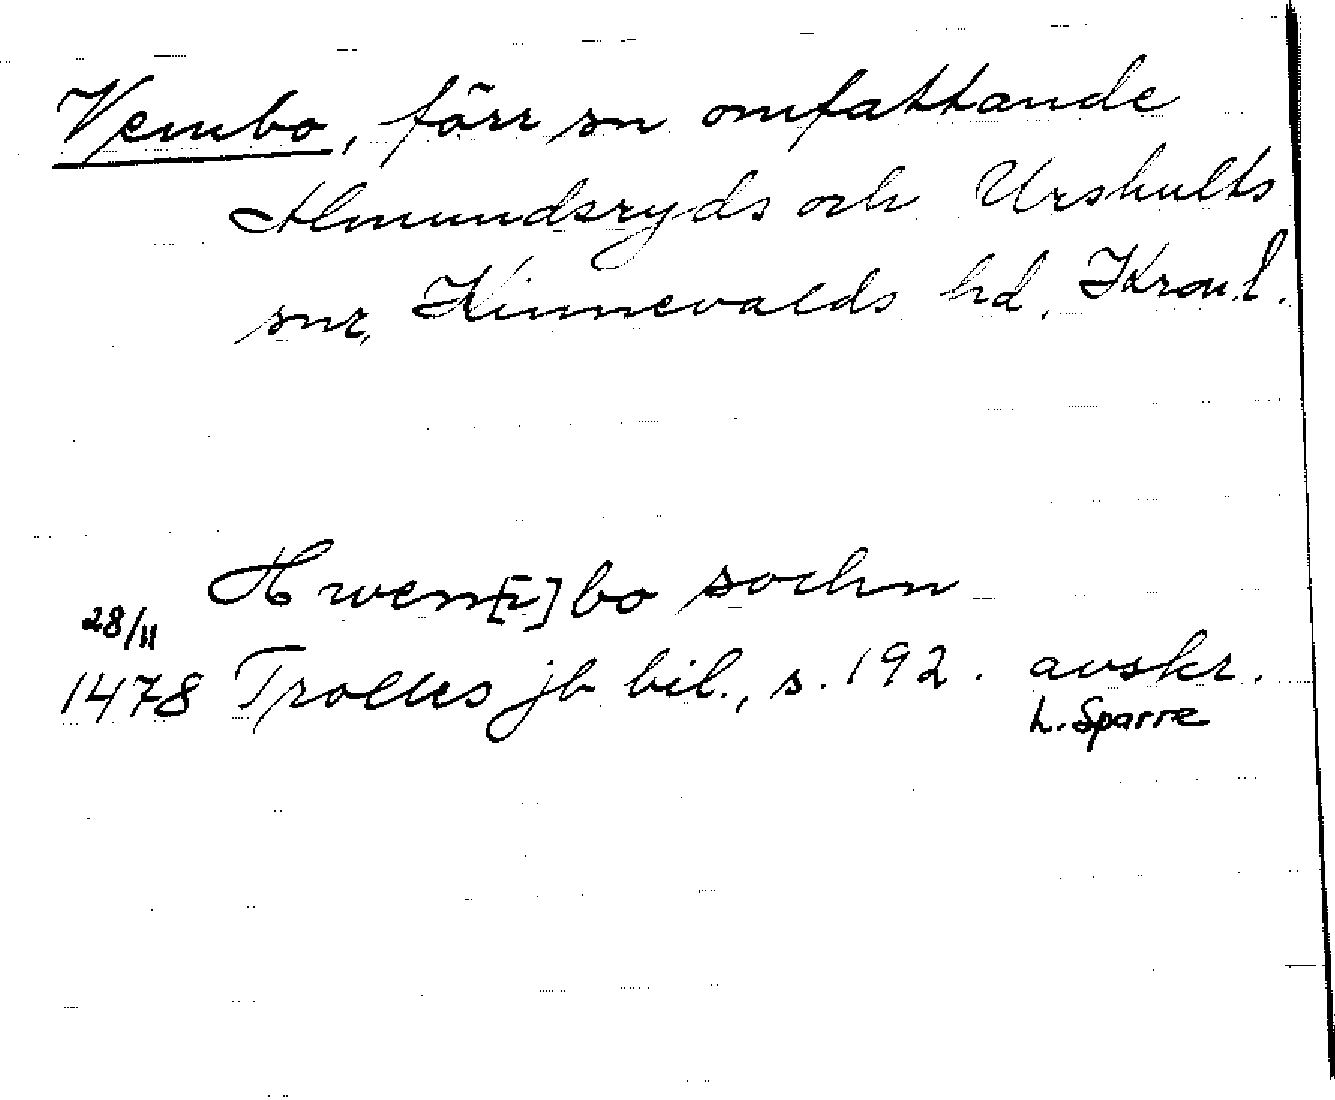 Vembo, förr sn omfattande
Almundsryds och Urshults
snr, Kinnevalds hd, Kron.l.
Hwen[r]bo sochn
28/11
1478 Trolles jb bil., s. 192. avskr.
L. Sparre